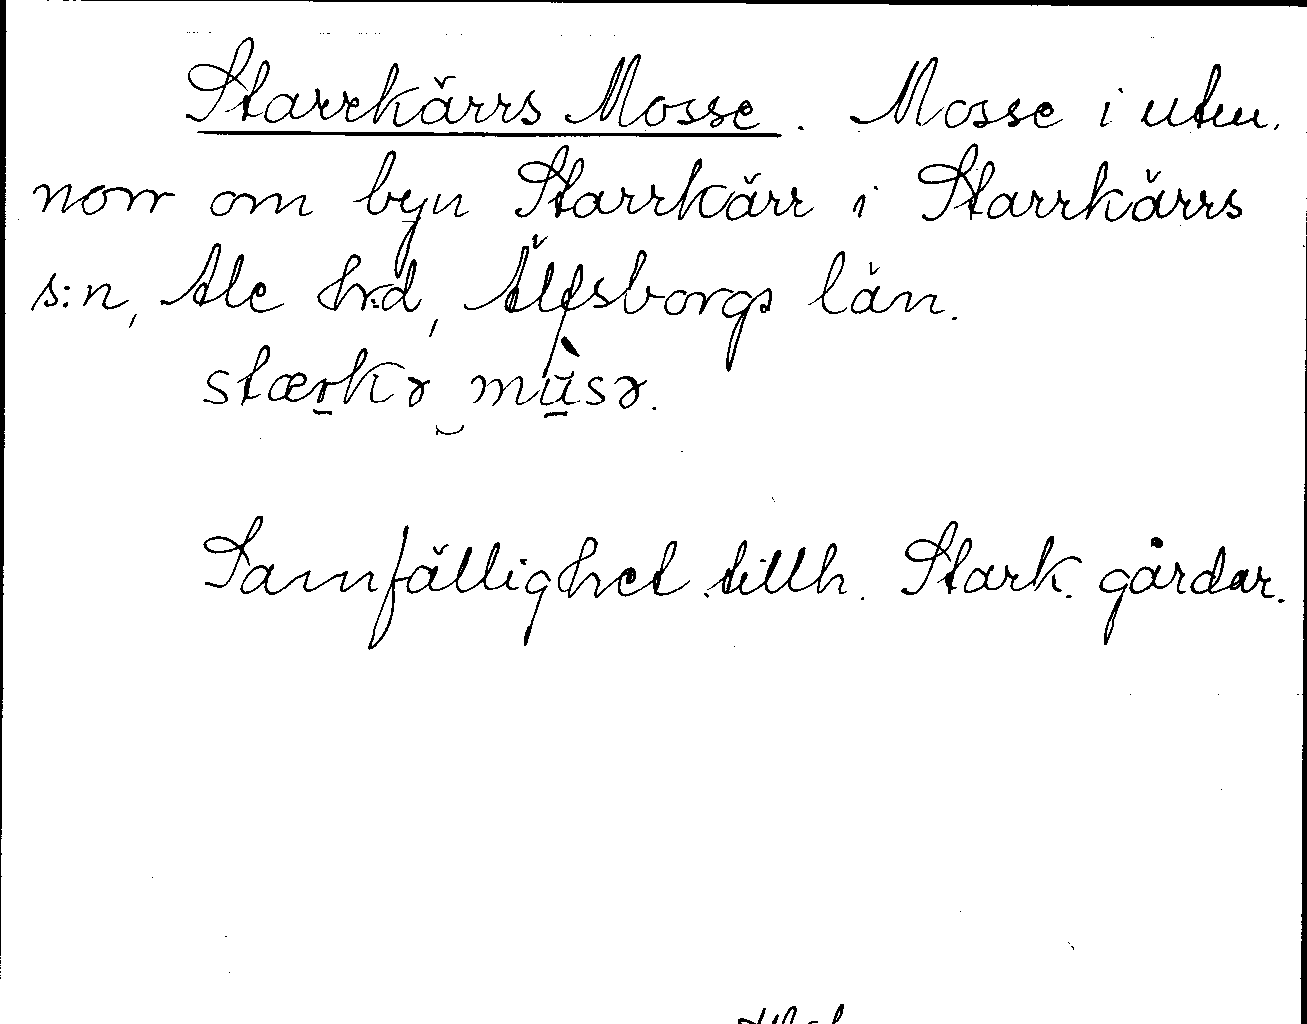 Starrkärrs Mosse. Mosse i utm.
norr om byn Starrkärr i Starrkärrs
s:n, Ale hrd, Älfsborgs län.
stærkə mùsə.
Samfällighet tillh. Stark. gårdar.